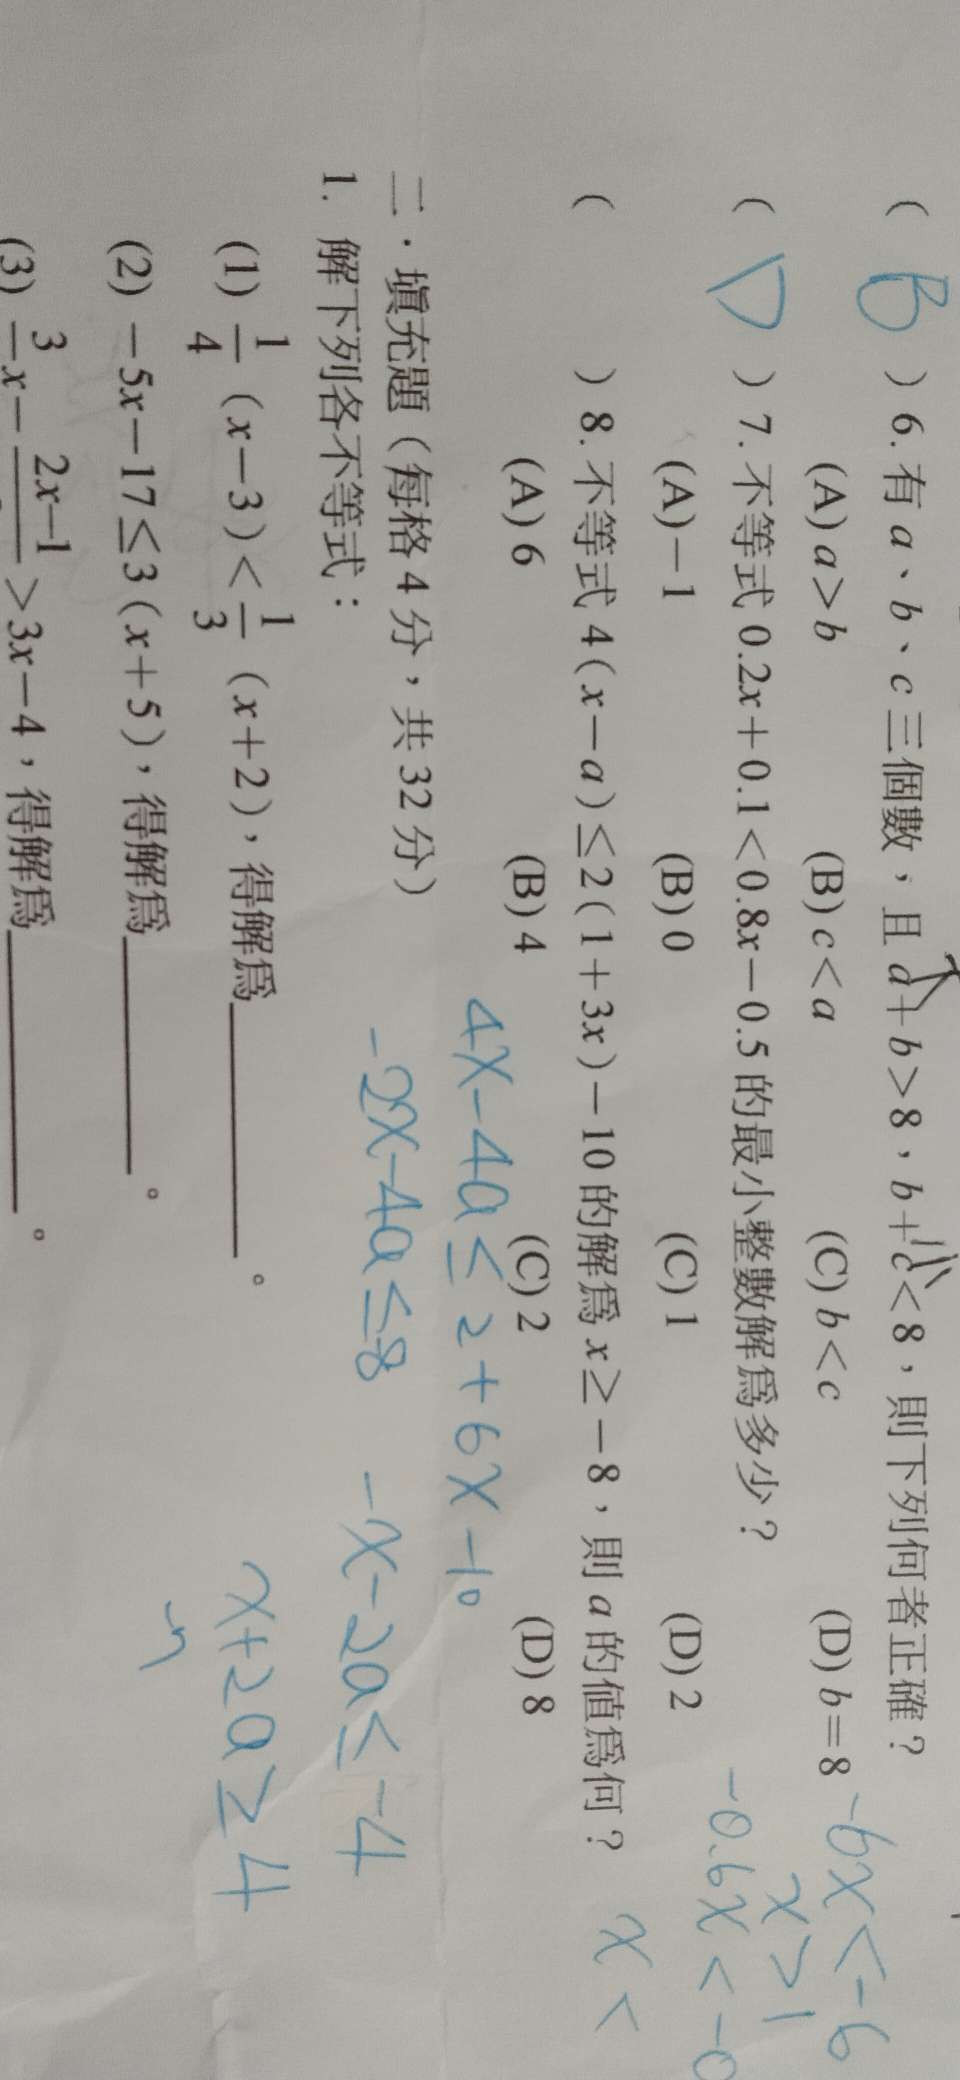 ( B ) 6. 有 a、b、c 三個數，且 a+b>8，b+c<8，則下列何者正確？
(A) a>b (B) c<a (C) b<c (D) b=8
-6x<-6
x>1
( D ) 7. 不等式 0.2x+0.1<0.8x-0.5 的最小整數解爲多少？
-0.6x<-0
(A) -1 (B) 0 (C) 1 (D) 2
( ) 8. 不等式 4(x-a)≤2(1+3x)-10 的解爲 x≥-8，則 a 的値爲何？
x<
(A) 6 (B) 4 (C) 2 (D) 8
4x-4a≤2+6x-10
二．塡充題（每格 4 分，共 32 分）
-2x-4a≤-8 -x-2a≤-4
1. 解下列各不等式：
x+2a≥4
(1) 1/4 (x-3)<1/3 (x+2)，得解爲________。
(2) -5x-17≤3(x+5)，得解爲________。
(3) 3 x- 2x-1 >3x-4，得解爲________。